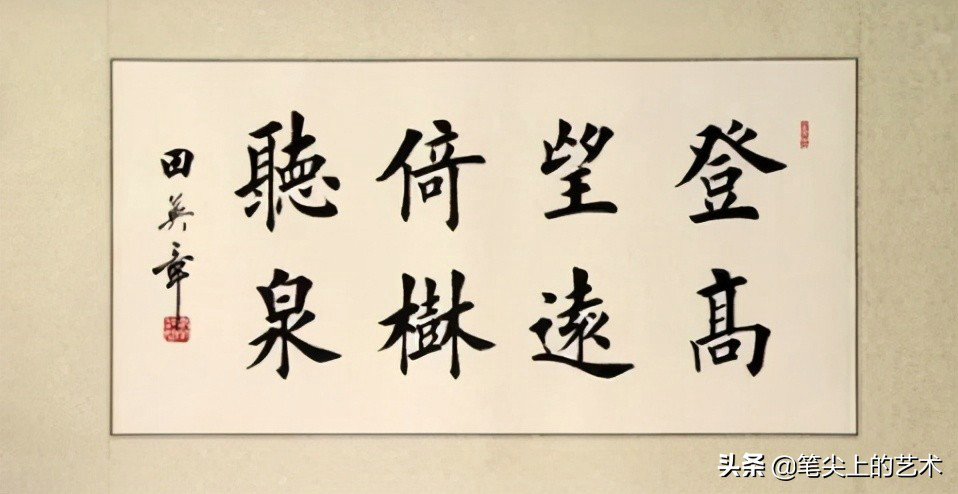 登高
望遠
倚樹
聽泉
田英章
头条 @笔尖上的艺术